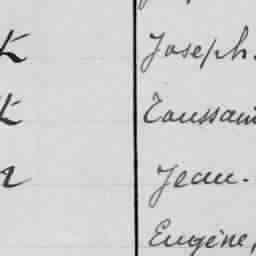 Joseph.
Toussain
Jean-
Eugène,